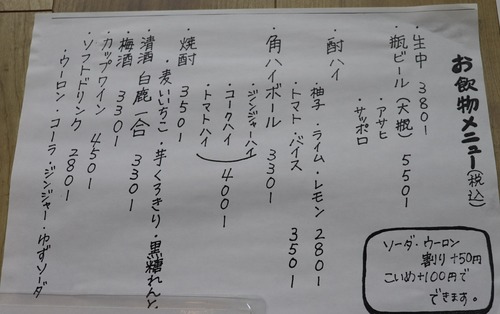 お飲物メニュー(税込)
・生中 380ー
・瓶ビール(大瓶) 550ー
・アサヒ
・サッポロ
・酎ハイ
・柚子・ライム・レモン 280ー
・トマト・バイス 350ー
・角ハイボール 330ー
・ジンジャーハイ
・コークハイ 400ー
・トマトハイ
・焼酎 350ー
・麦いいちこ・芋くろきり・黒糖れんと
・清酒 白鹿一合 330ー
・梅酒 330ー
・カップワイン 450ー
・ソフトドリンク 280ー
・ウーロン・コーラ・ジンジャー・ゆずソーダ
ソーダ・ウーロン
割り+50円
こいめ+100円で
できます。